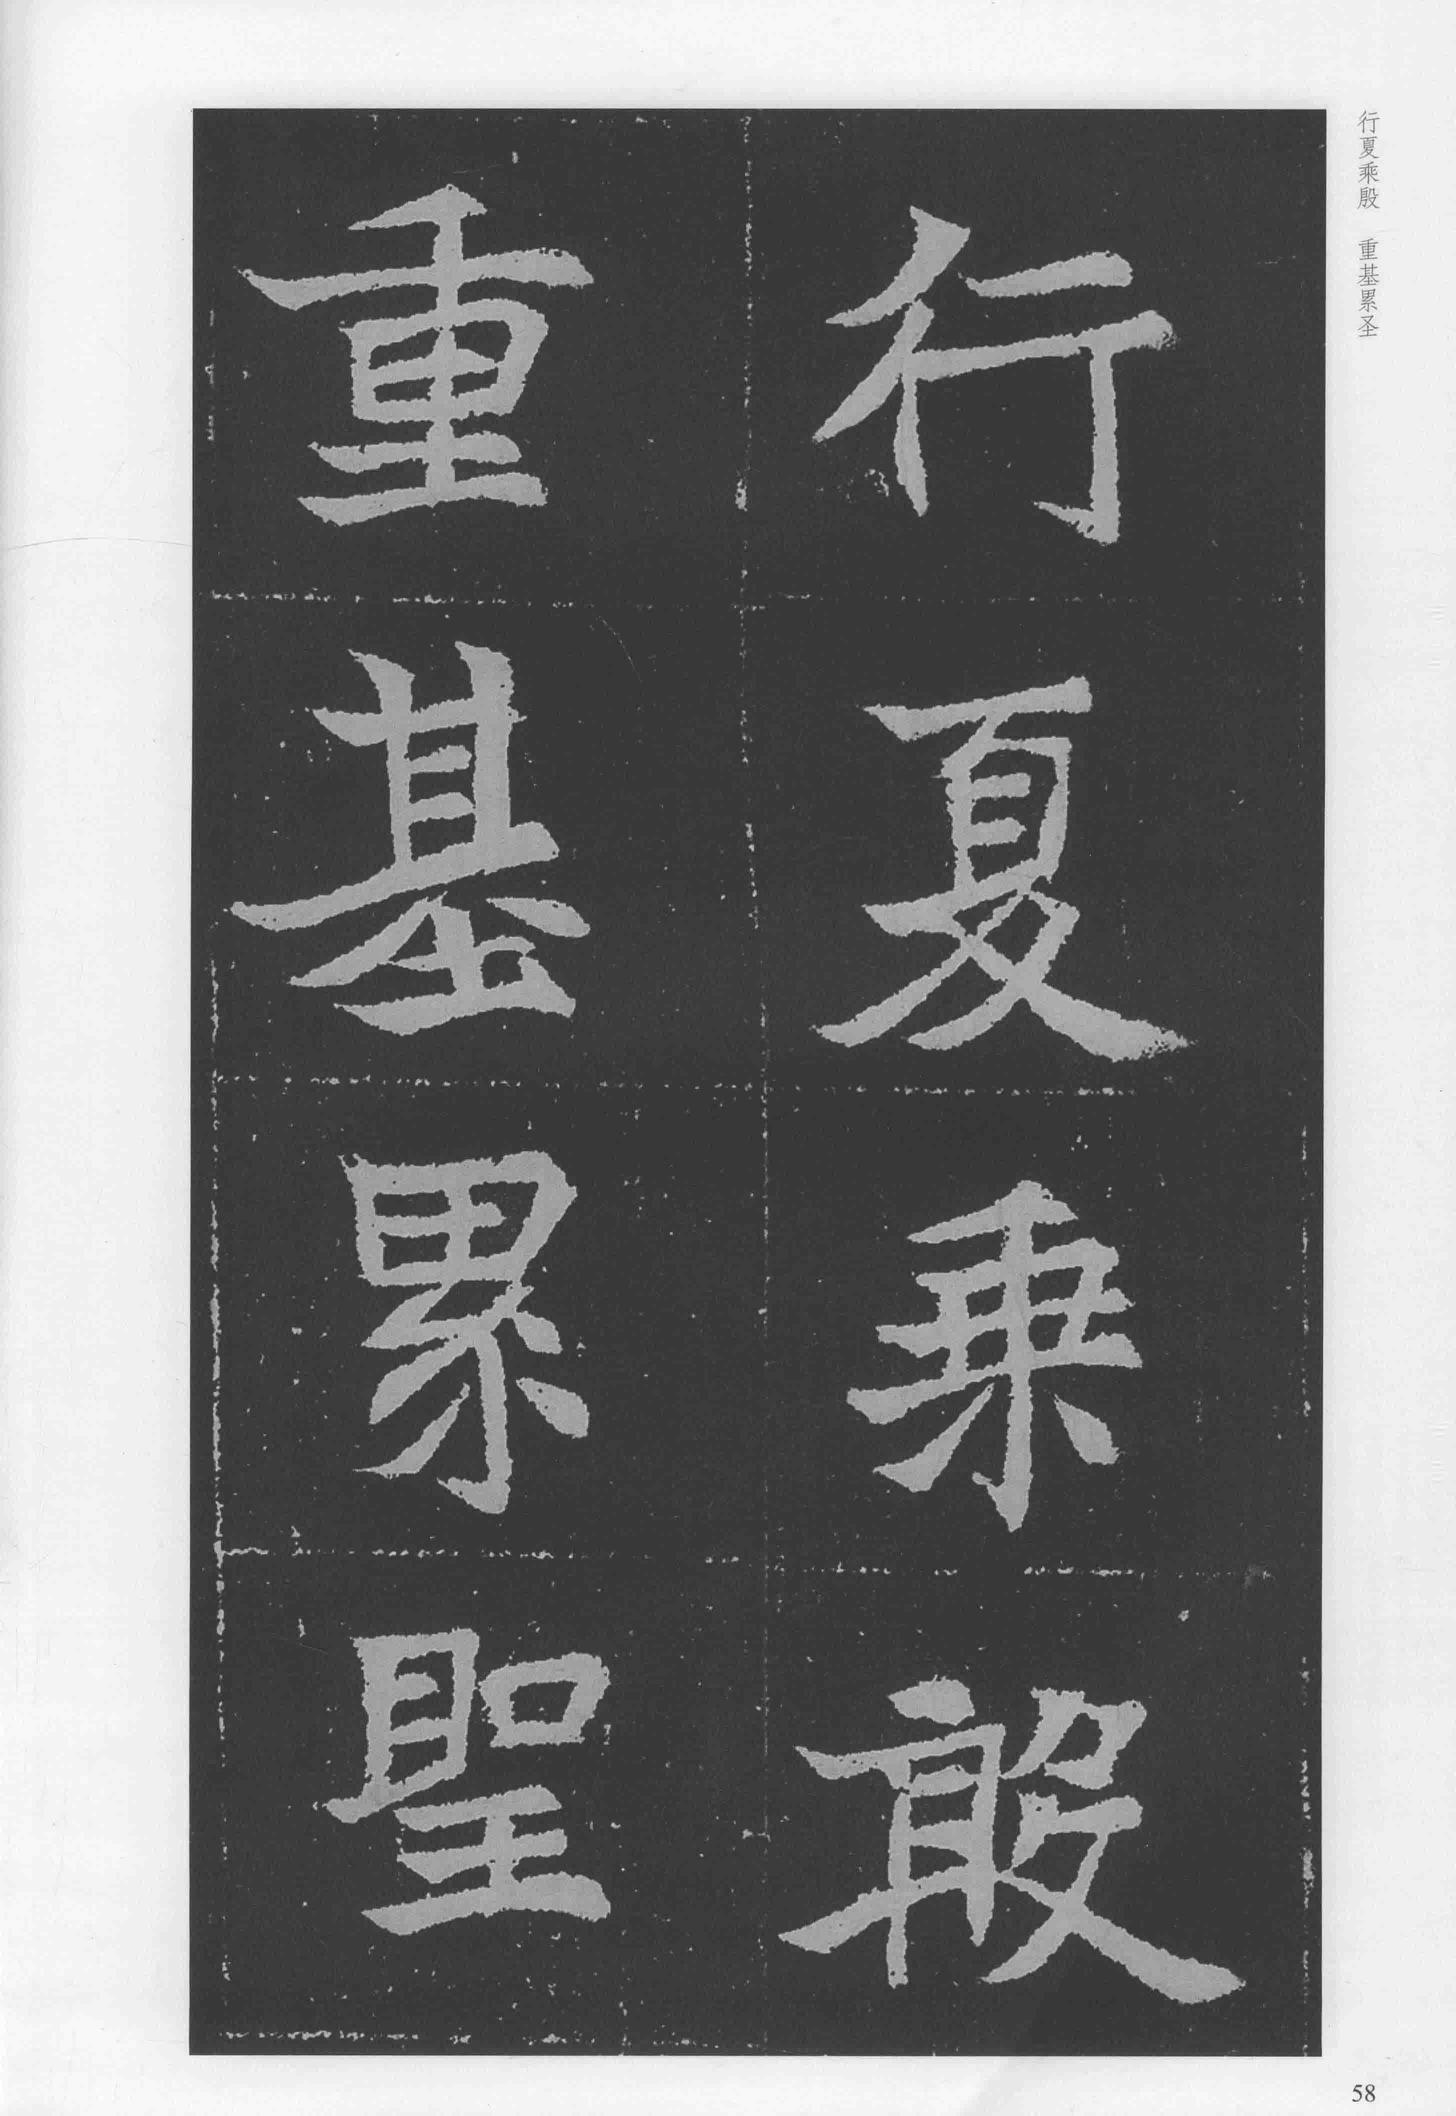 行夏乘殷　重基累圣
行夏乗殷
重基累聖
58